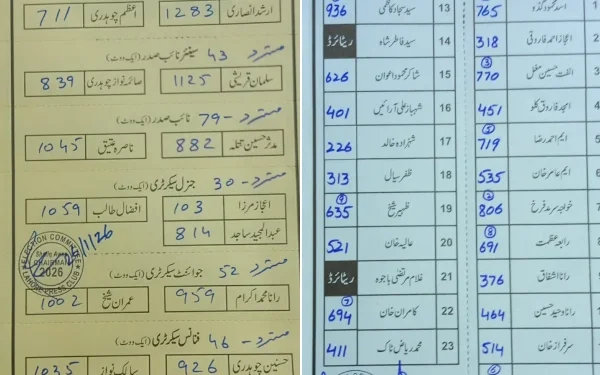 ارشد انصاری 1283 اعظم چوہدری 711
مسترد - 43 سینئر نائب صدر (ایک ووٹ)
سلمان قریشی 1125 صائمہ نواز چوہدری 839
مسترد - 79 نائب صدر (ایک ووٹ)
مدثر حسین تتلہ 882 ناصرہ عتیق 1045
مسترد - 30 جنرل سیکرٹری (ایک ووٹ)
اعجاز مرزا 103 افضال طالب 1059
عبدالمجید ساجد 814
مسترد - 52 جوائنٹ سیکرٹری (ایک ووٹ)
رانا محمد اکرام 959 عمران شیخ 1002
مسترد - 46 فنانس سیکرٹری (ایک ووٹ)
حسنین چوہدری 926 سالک نواز 1035
ELECTION COMMITTEE
CHAIRMAN
2026
LAHORE PRESS CLUB
13 سید سجاد کاظمی 936
14 سید فاطر شاہ ریٹائرڈ
15 شاکر محمود اعوان 626
16 شہباز علی آرائیں 401
17 شہزادہ خالد 226
18 ظفر سیال 313
19 ظہیر شیخ 635 9
20 عالیہ خان 521
21 غلام مرتضیٰ باجوہ ریٹائرڈ
22 کامران خان 694 7
23 محمد ریاض ٹاک 411
اسد محمود گڈو 765
اعجاز احمد فاروقی 318
الفت حسین مغل 770 3
امجد فاروق کلو 451
ایم احمد رضا 719
ایم عامر خان 535
خواجہ سرمد فرخ 806 2
رابعہ عظمت 691 8
رانا اشفاق 376
رانا وحید حسین 464
سرفراز خان 514